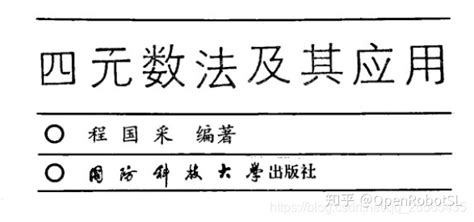 四元数法及其应用
程国采 编著
国防科技大学出版社
知乎 @OpenRobotSL